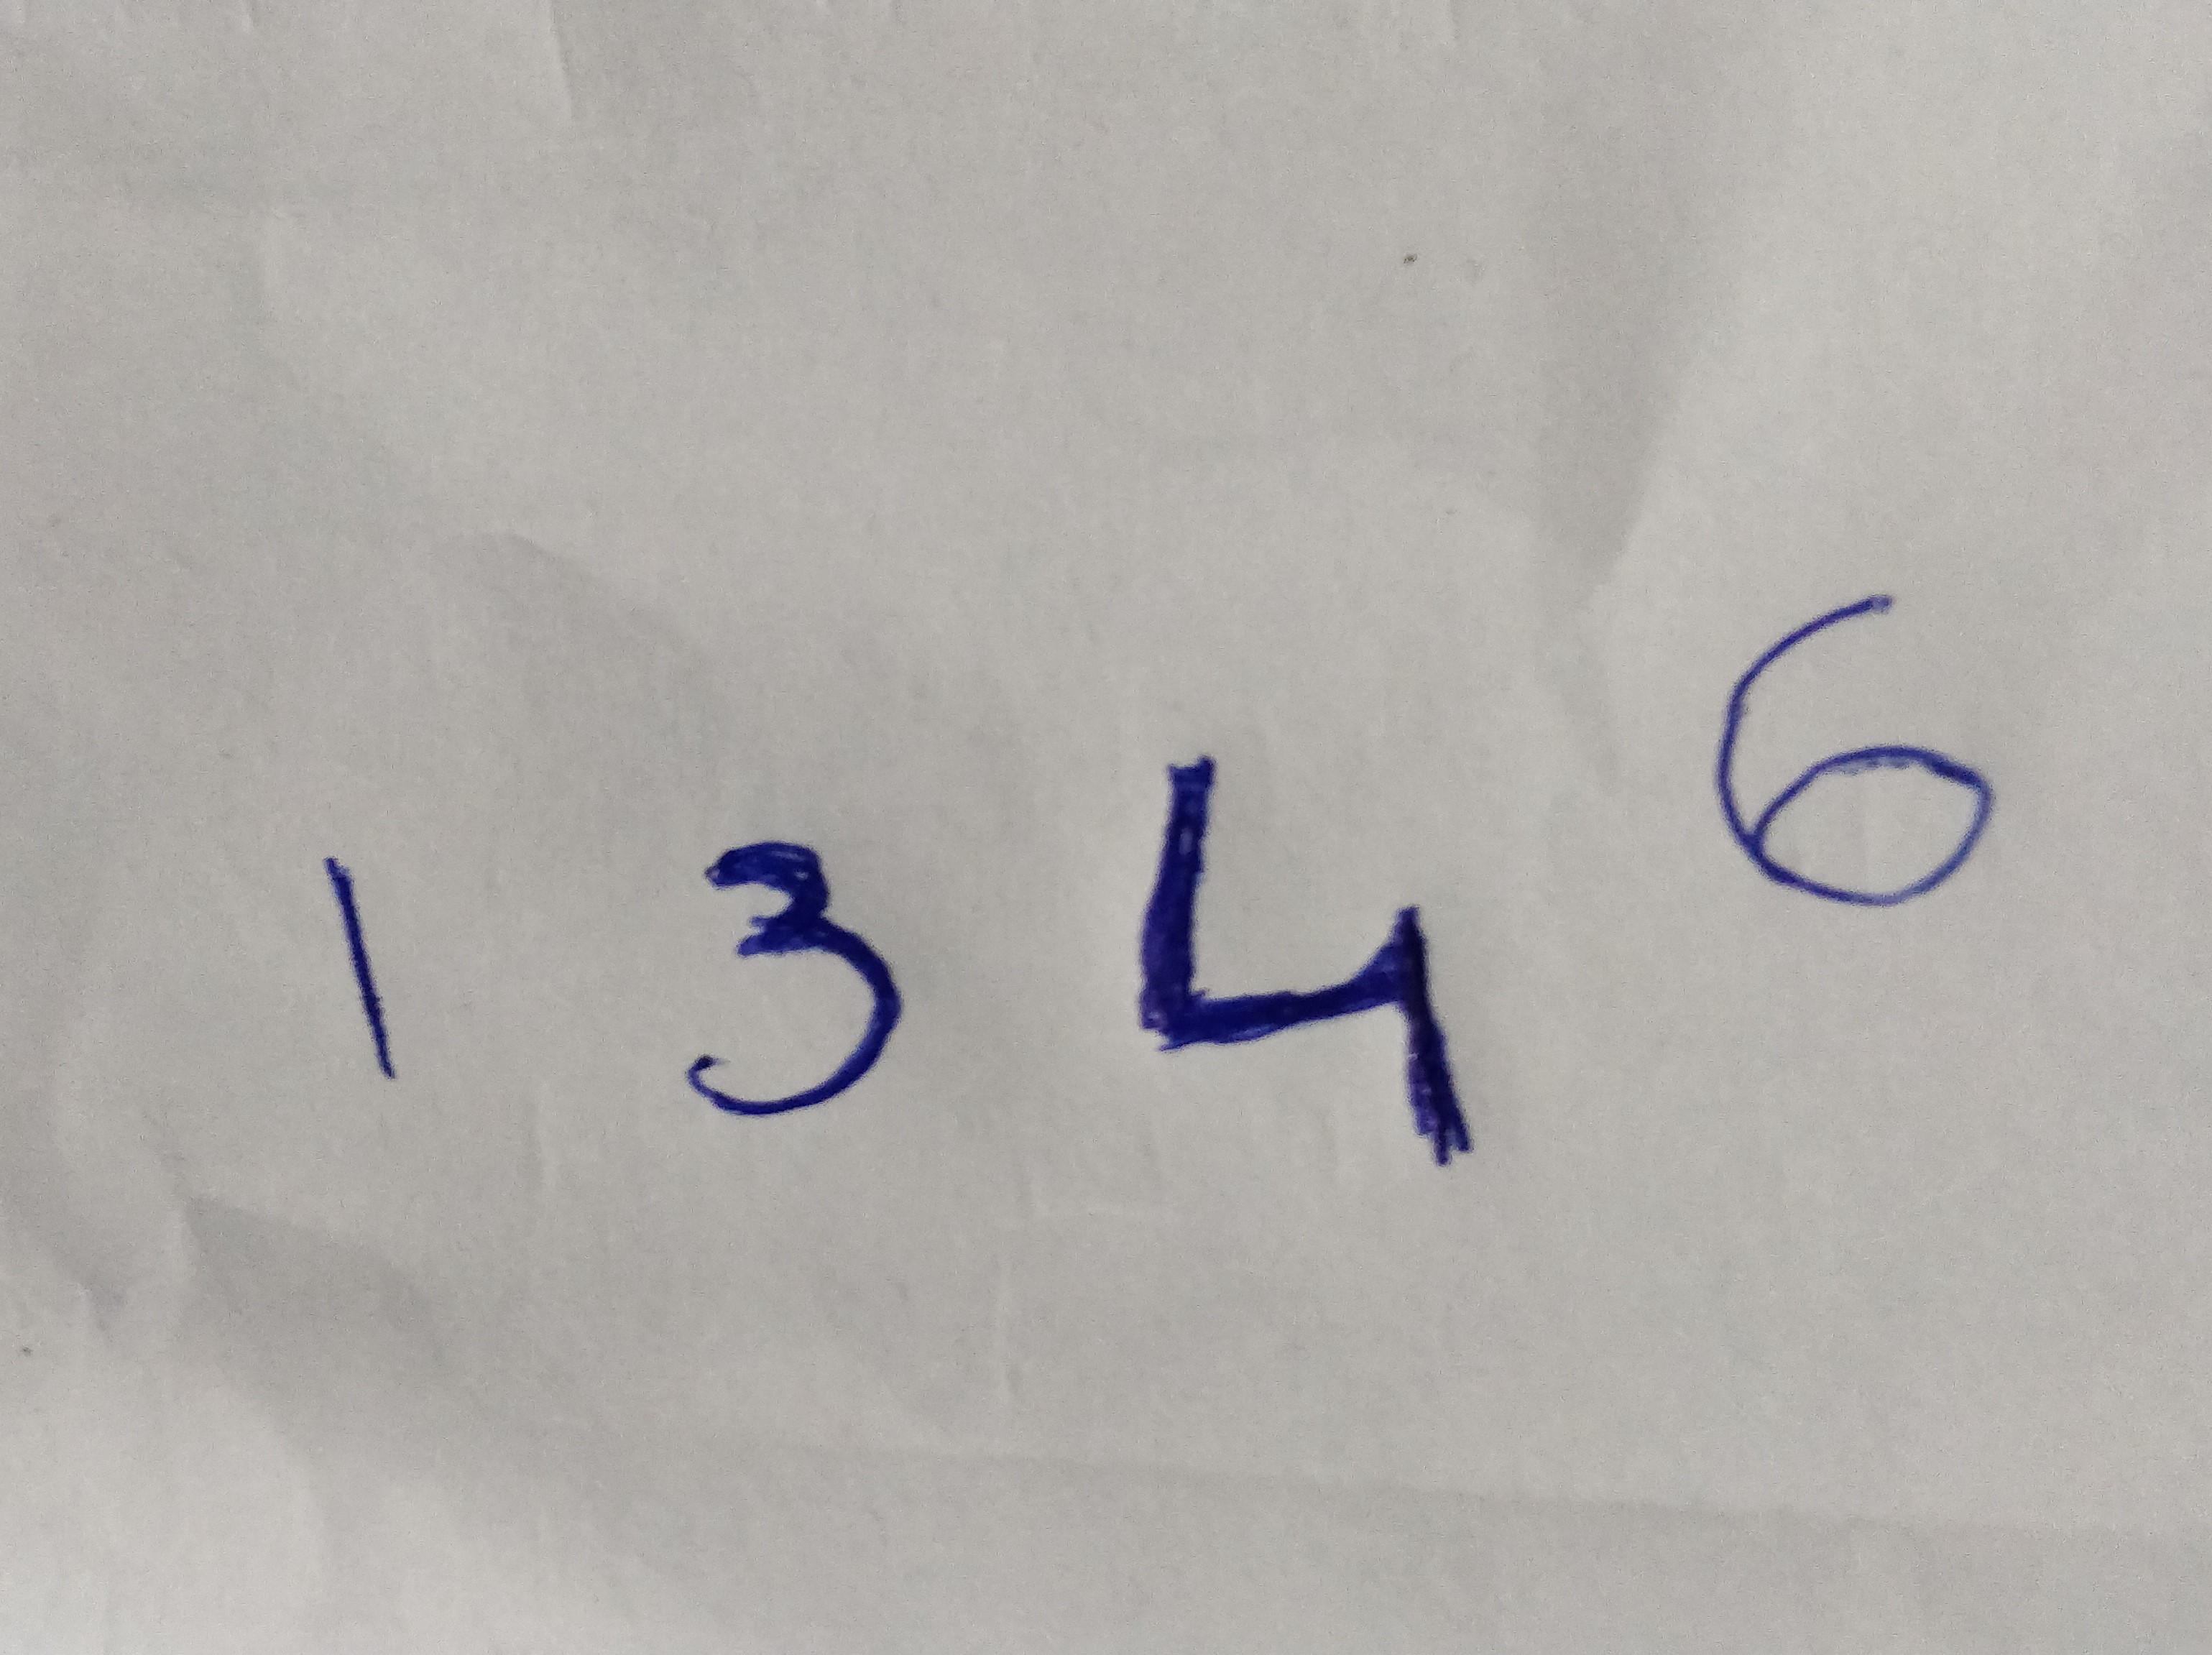 1 3 4 6